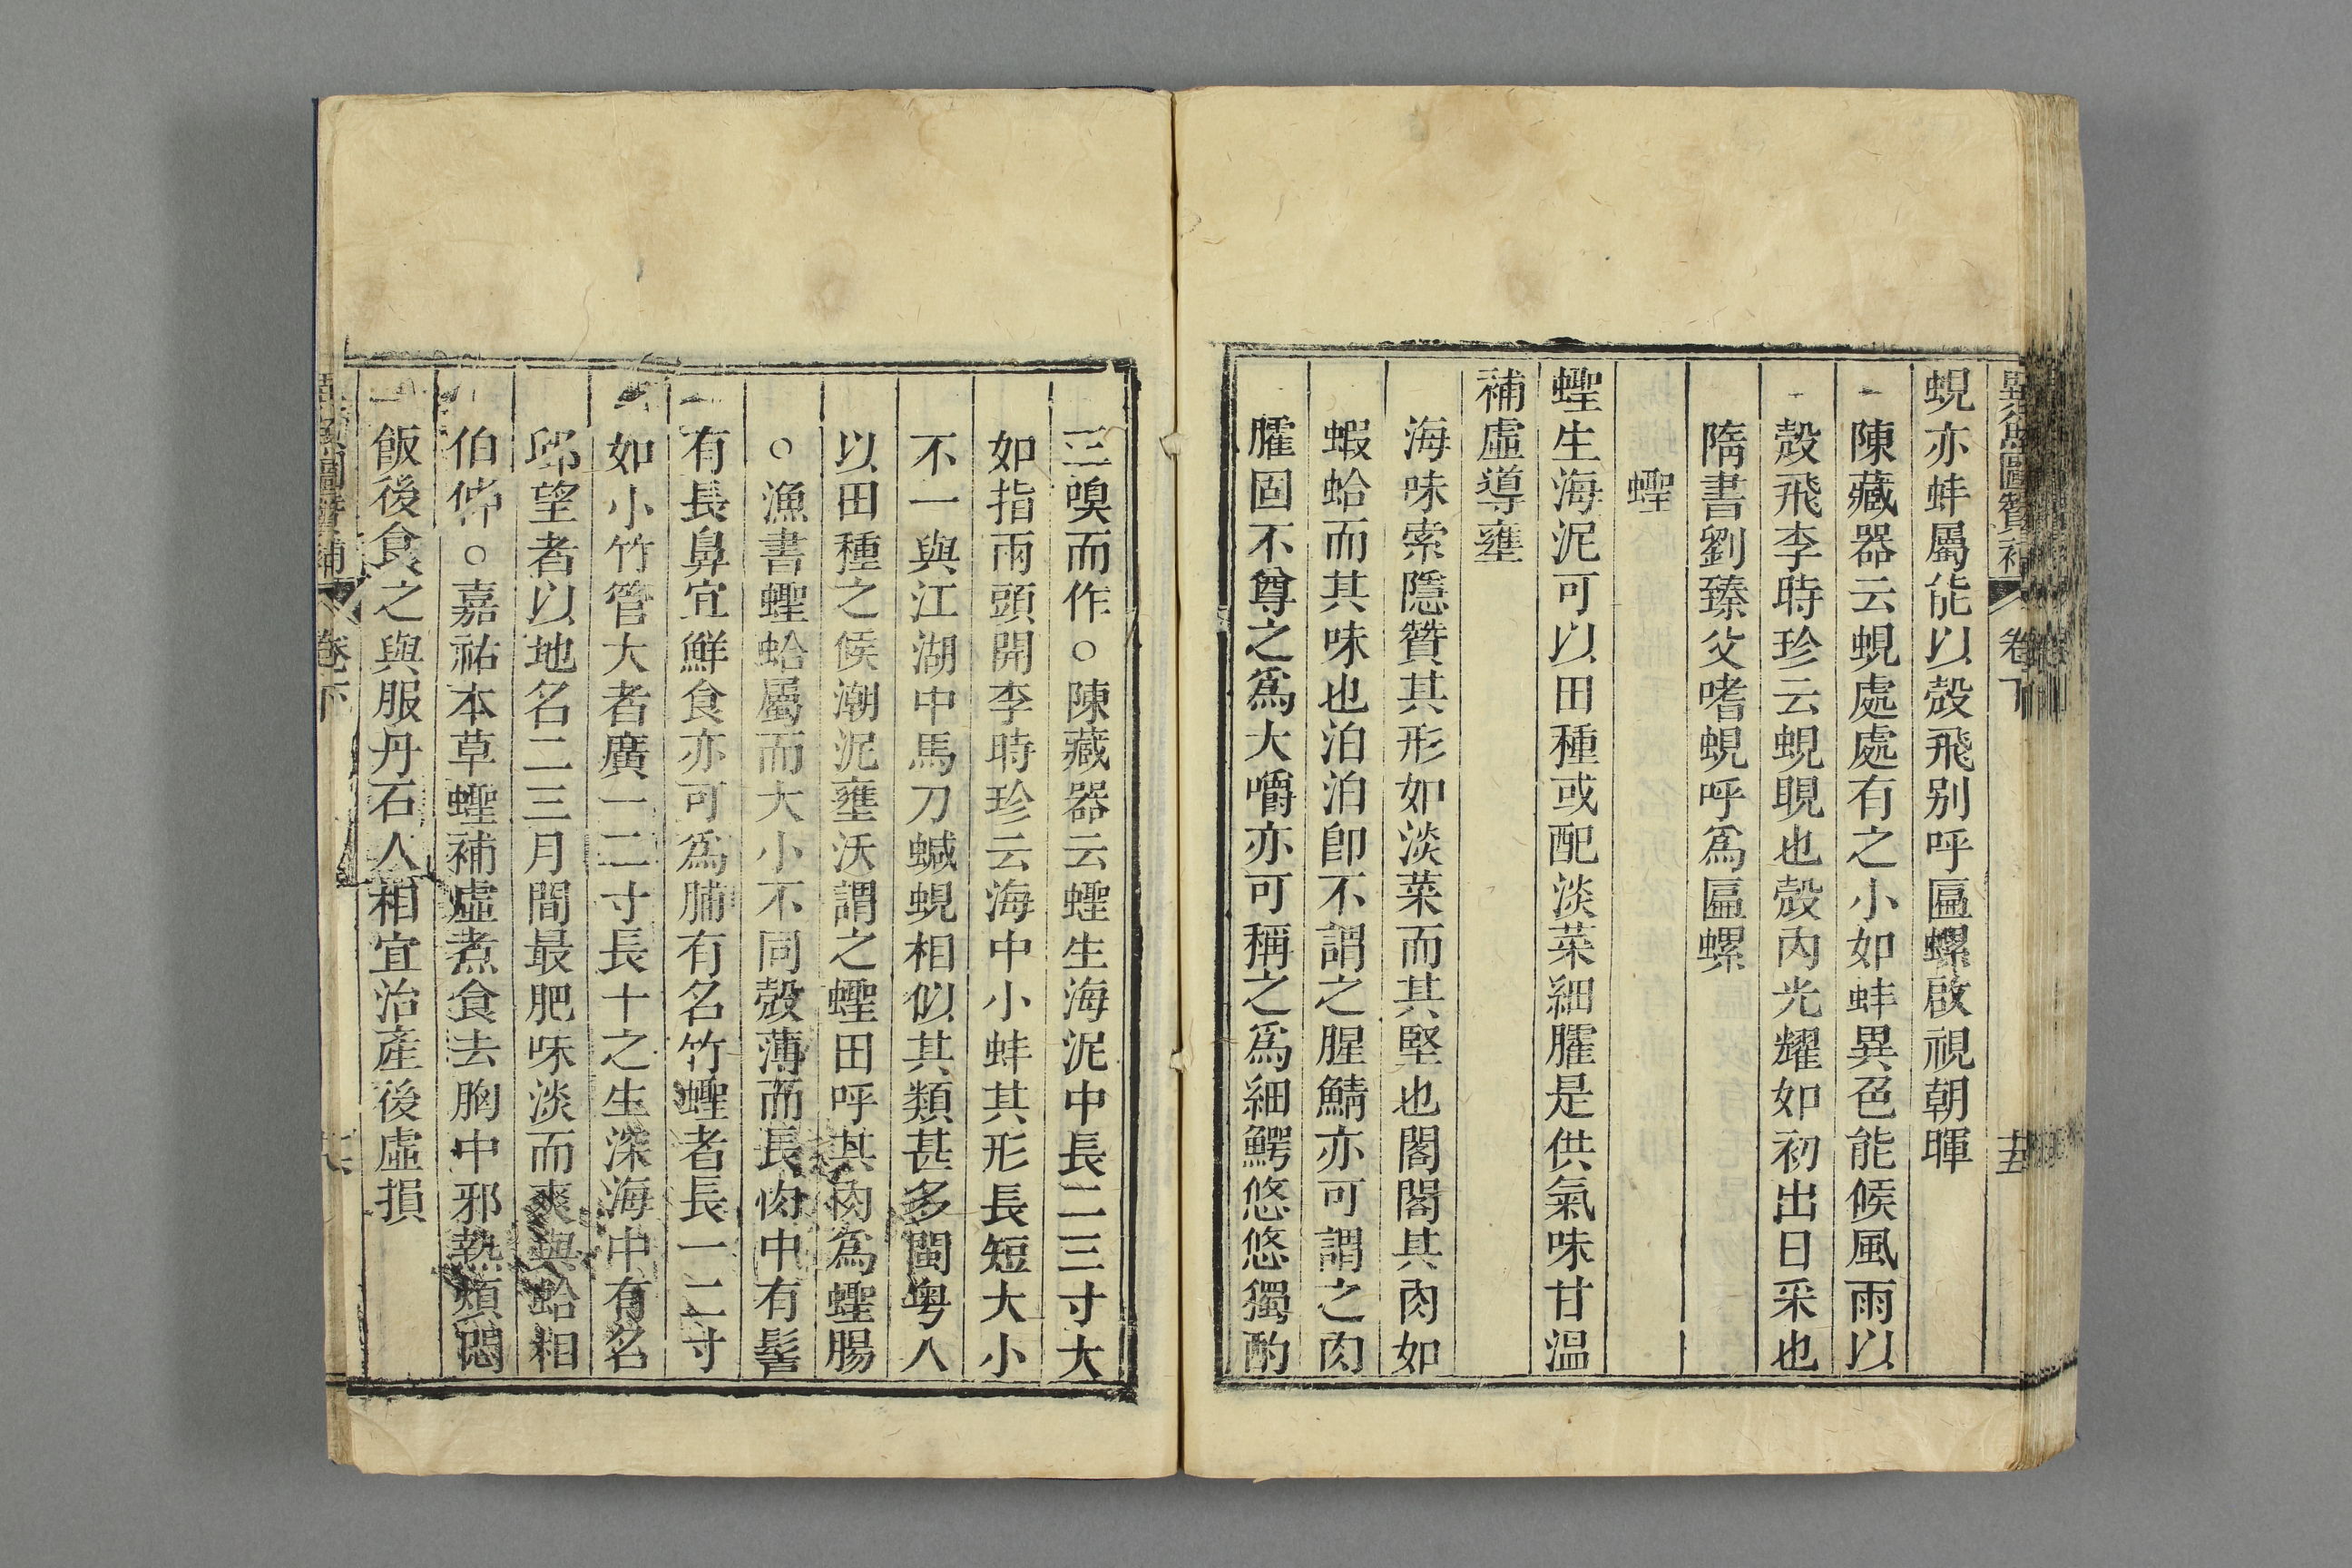 異魚圖贊補 卷下 十五
蜆亦蚌屬能以殼飛别呼匾螺啟視朝暉
陳藏器云蜆處處有之小如蚌異色能候風雨以
殼飛李時珍云蜆晛也殼內光耀如初出日采也
隋書劉臻父嗜蜆呼爲匾螺
蟶
蟶生海泥可以田種或配淡菜細臛是供氣味甘溫
補虛導壅
海味索隱贊其形如淡菜而其堅也閣閣其肉如
蝦蛤而其味也泊泊卽不謂之腥鯖亦可謂之肉
臛固不尊之爲大嚼亦可稱之爲細鰐悠悠獨酌
三嗅而作○陳藏器云蟶生海泥中長二三寸大
如指兩頭開李時珍云海中小蚌其形長短大小
不一與江湖中馬刀蝛蜆相似其類甚多閩粤人
以田種之候潮泥壅沃謂之蟶田呼其肉爲蟶腸
○漁書蟶蛤屬而大小不同殼薄而長肉中有髻
有長鼻宜鮮食亦可爲脯有名竹蟶者長一二寸
如小竹管大者廣一二寸長十之生深海中有名
邱望者以地名二三月間最肥味淡而爽與蛤相
伯仲○嘉祐本草蟶補虛煮食去胸中邪熱煩悶
飯後食之與服丹石人相宜治產後虛損
圖贊補 卷下 十六